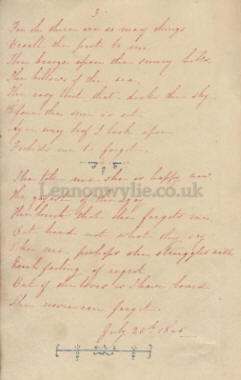 3
For oh there are so many things
Recall the past to me
The breeze upon the sunny hills
The billows of the sea
The rosy tint that decks the sky
Before the sun is set
Ay every leaf I look upon
Forbids me to forget.
They tell me she is happy now
The gayest of the gay
They hint that she forgets me
But heed not what they say
Like me perhaps she struggles with
Each feeling of regret
But if she loves as I have loved
She never can forget.
July 20th
Lennonwylie.co.uk